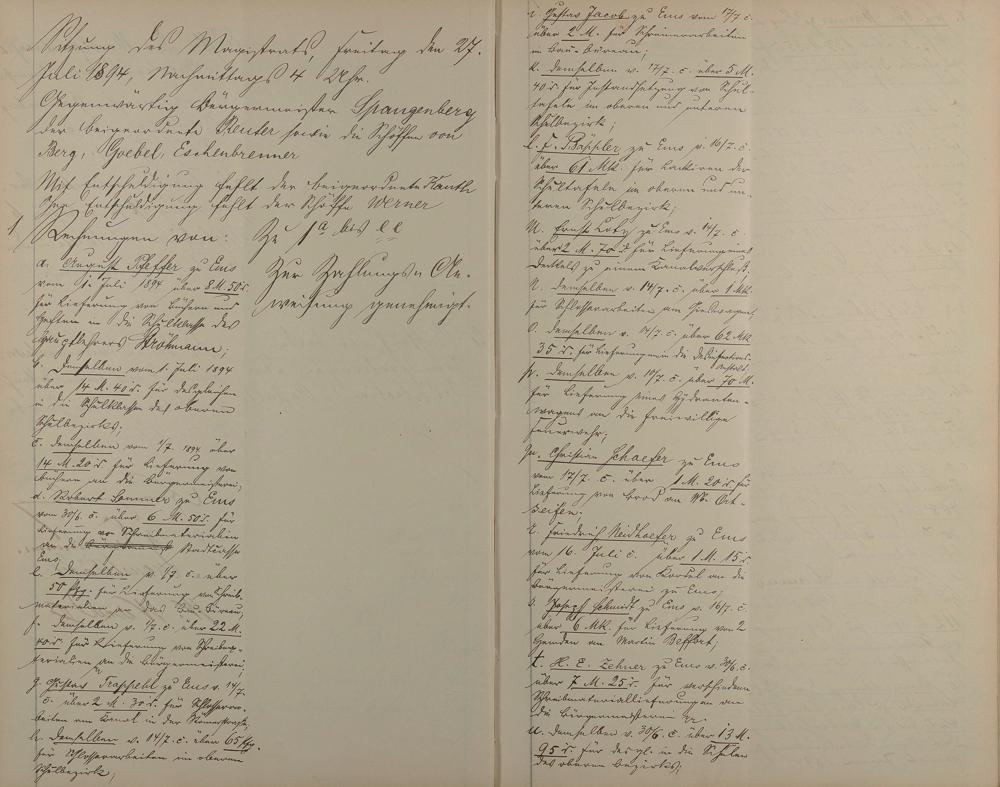 Sitzung des Magistrats, Freitag den 27.
Juli 1894, Nachmittags 4 Uhr.
Gegenwärtig Bürgermeister Spangenberg
der Beigeordnete Reuter sowie die Schöffen von
Berg, Goebel, Eschenbrenner
Mit Entschuldigung fehlt der Beigeordnete Kauth
Ohne Entschuldigung fehlt der Schöffe Werner
1 Rechnungen von:
a. August Pfeffer zu Ems
vom 1. Juli 1894 über 8 M. 50 d.
für Lieferung von Büchern und
Heften in die Schulklasse des
Hauptlehrers Ströhmann;
b. demselben vom 1. Juli 1894
über 14 M. 40 d. für desgleichen
in die Schulklassen des oberen
Schulbezirks;
c. demselben vom 1/7. 1894 über
14 M. 20 d. für Lieferung von
Büchern an die Bürgermeisterei;
d. Robert Sommer zu Ems
vom 30/6. c. über 6 M. 50 d. für
Lieferung von Schreibmaterialien
an die Stadtcasse
Ems;
e. demselben v. 1/7. c. über
50 Pfg. für Lieferung von Schreib-
materialien an das Bau-Büreau;
f. demselben v. 1/7. c. über 22 M.
40 d. für Lieferung von Schreibma-
terialien an die Bürgermeisterei;
g. Gustav zu Ems v. 14/7.
c. über 2 M. 30 d. für Schlosserar-
beiten am Kanal in der Römerstraße;
h. demselben v. 14/7. c. über 65 Pfg.
für Schlosserarbeiten im oberen
Schulbezirk;
Zu 1 a bis ll
Zur Zahlungs- An-
weisung genehmigt.
i Gustav Jacob zu Ems vom 17/7. c.
über 2 M. für Schreinerarbeiten
im Bau-Bureau;
k. demselben v. 17/7. c. über 5 M.
40 d. für Instandsetzung von Schul-
tafeln im oberen und unteren
Schulbezirk;
l. F. Bäppler zu Ems v. 16/7. c.
über 61 Mk. für Lackiren der
Schultafeln im oberen und un-
teren Schulbezirk;
m. Ernst Lotz zu Ems v. 14/7. c.
über 2 M. 70 d. für Lieferung eines
Deckels zu einem Kanalverschluß.
n. demselben v. 14/7. c. über 1 Mk.
für Schlosserarbeiten am Gießwagen;
o. demselben v. 14/7. c. über 62 Mk
35 d. für Lieferungen in die Desinfections-
Anstalt.
p. demselben v. 10/7. c. über 70 M.
für Lieferung eines Hydranten-
wagens an die freiwillige
Feuerwehr;
q. Christian Schaefer zu Ems
vom 17/7. c. über 1 M. 20 d. für
Lieferung von Brod an Ort-
seifen.
r. Friedrich Neidhoefer zu Ems
vom 16. Juli c. über 1 M. 15 d.
für Lieferung von Kordel an die
Bürgermeisterei zu Ems;
s. Joseph Schmidt zu Ems v. 16/7. c.
über 6 Mk. für Lieferung von 2
Hemden an Martin Beffort;
t. H. E. Zehner zu Ems v. 30/6. c.
über 7 M. 25 d. für verschiedene
Schreibmateriallieferungen an
die Bürgermeisterei
u. demselben v. 30/6. c. über 13 M.
95 d. für desgl. in die Schulen
des oberen Bezirks;